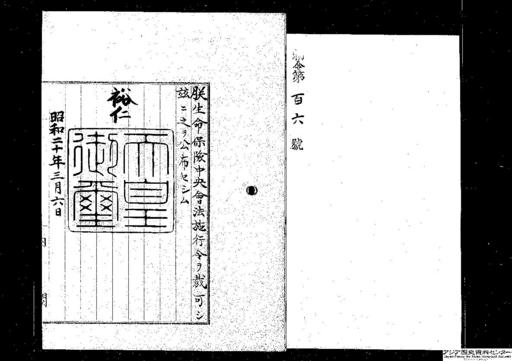 勅令第百六號
朕生命保險中央會法施行令ヲ裁可シ
茲ニ之ヲ公布セシム
裕仁
天皇御璽
昭和二十年三月六日
内閣
アジア歴史資料センター